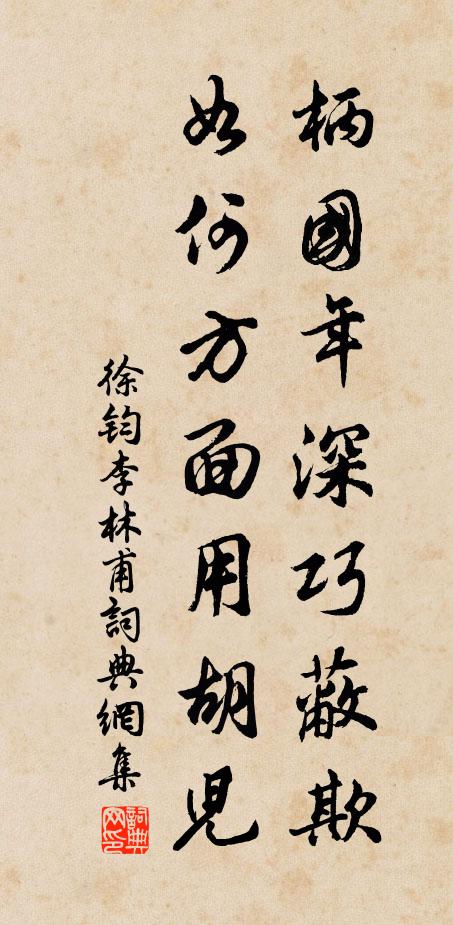 柄國年深巧蔽欺
如何方面用胡児
徐鈞李林甫詞典網集
詞典网印